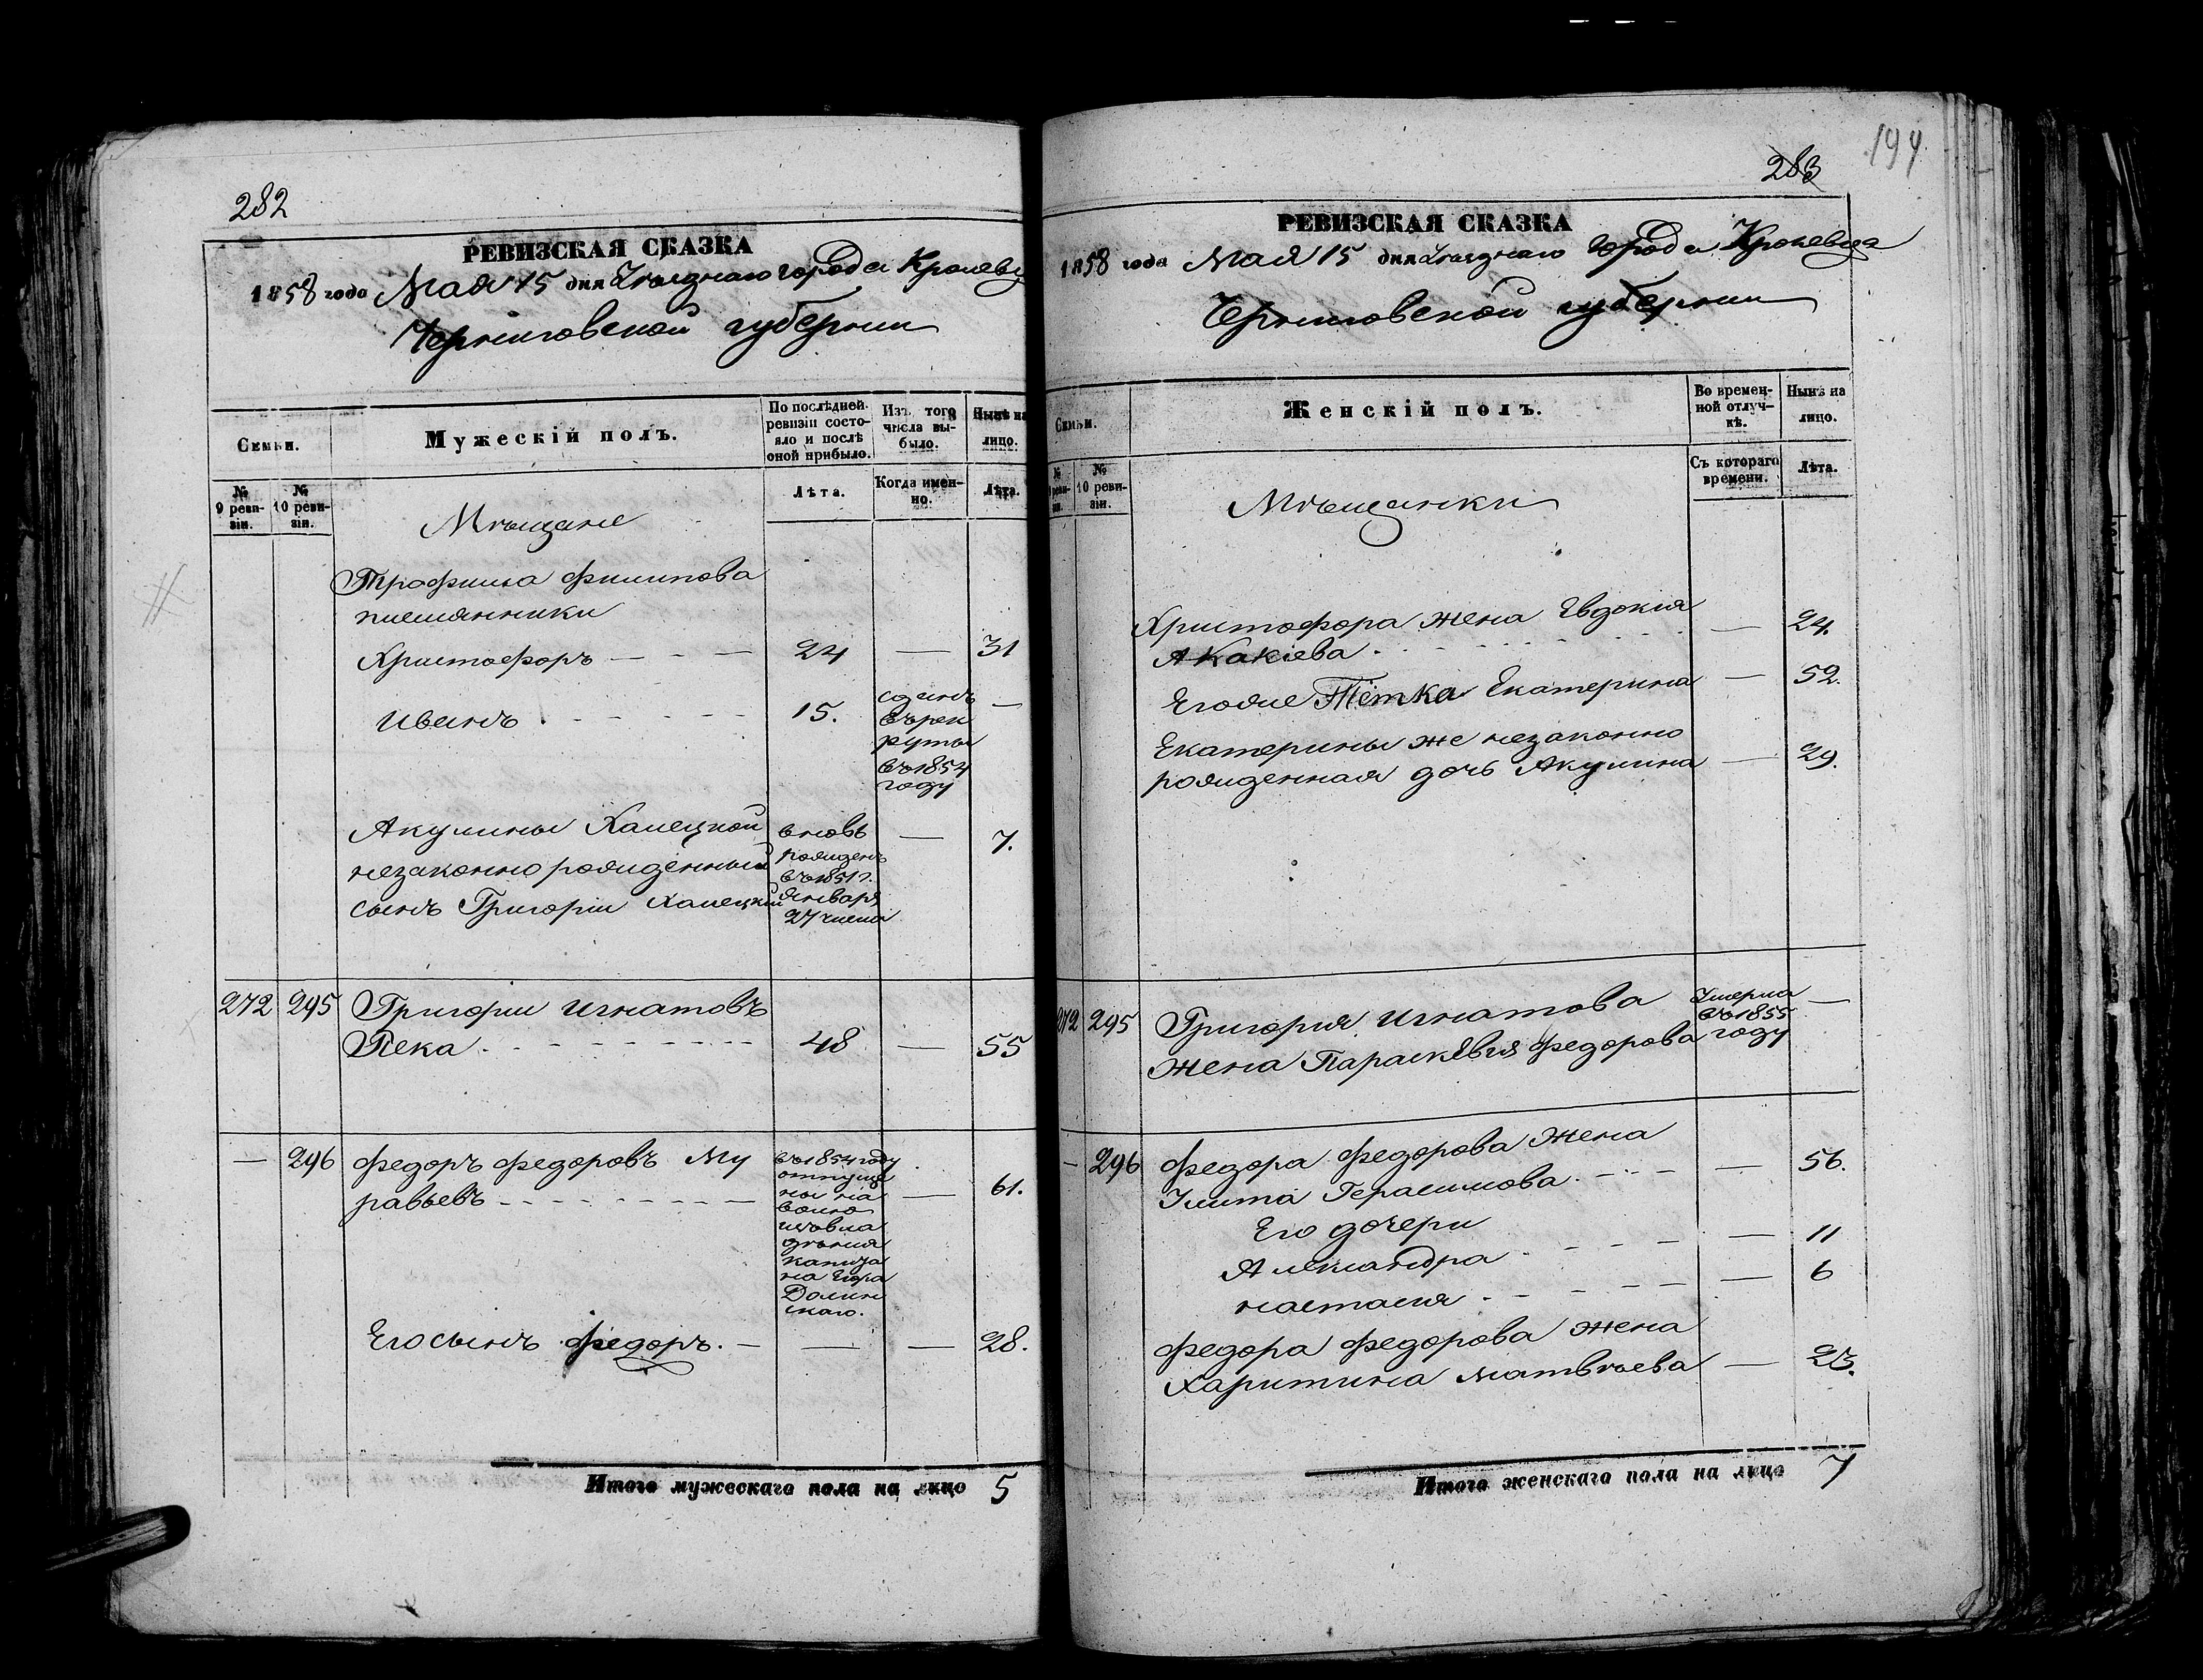 282
РЕВИЗСКАЯ СКАЗКА
1858 года Мая 15 дня Уѣзднаго города Кролевца
Черниговской губернии
Семьи.
Мужескій полъ.
По послѣдней ревизіи состояло и послѣ оной прибыло.
Изъ того числа выбыло.
Нынѣ на лицо.
№ 9 ревизіи.
№ 10 ревизіи.
Лѣта.
Когда именно.
Лѣта.
Мѣщане
Трофима Филипова
племянники
Христофоръ 24 — 31
Иванъ 15. сданъ въ рекруты въ 1854 году —
Акулины Халецкой вновь — 7.
незаконно рожденный рожденъ въ 1851 г.
сынъ Григорій Халецкій Января 27 числа
272 295 Григорій Игнатовъ
Река 48 — 55
— 296 Федоръ Федоровъ Му
равьевъ — 61.
въ 1854 году
отпуще
ны на
волю
изъ вла
дѣния
капита
на
Долин
скаго.
Его сынъ Федоръ. — — — 28.
Итого мужескаго пола на лицо 5
194
283
РЕВИЗСКАЯ СКАЗКА
1858 года Мая 15 дня Уѣзднаго города Кролевца
Черниговской губернии
Семьи.
Женскій полъ.
Во временной отлучкѣ.
Нынѣ на лицо.
№ 9 ревизіи.
№ 10 ревизіи.
Съ котораго времени.
Лѣта.
Мѣщанки
Христофора жена Евдокия
Акакіева — 24.
Его же Тётка Екатерина — 52.
Екатерины же незаконно
рожденная дочь Акулина — 29.
272 295 Григория Игнатова Умерла —
жена Параскевия Федорова въ 1855 году
— 296 Федора Федорова Жена
Улита Герасимова — 56.
Его дочери
Александра — 11
Настасия — 6
Федора Федорова жена
Харитина Матвѣева — 23.
Итого женскаго пола на лицо 7